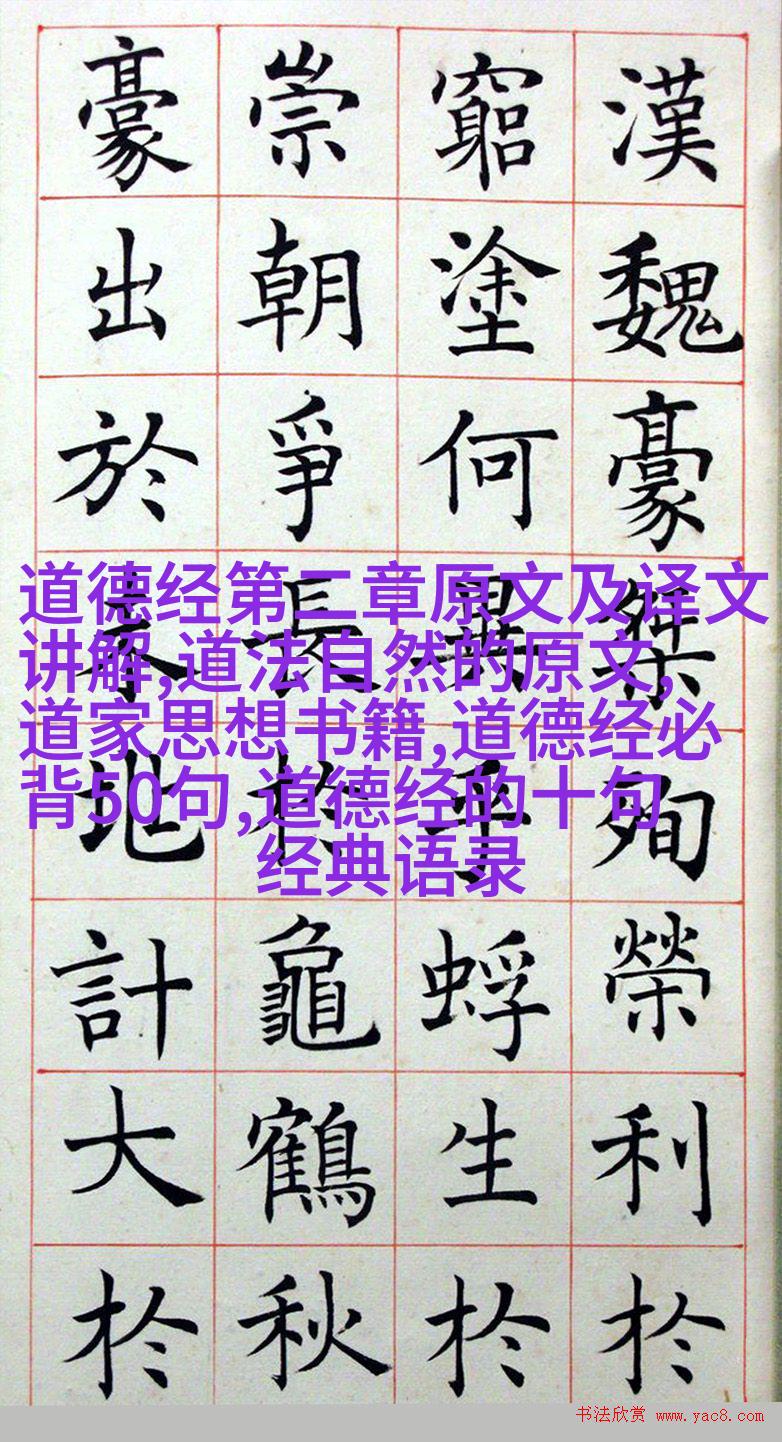 漢魏豪桀殉榮利扵
窮塗何異乎蜉生扵
崇朝爭長扵龜鶴秋
豪出於地計大扵
道德经第二章原文及译文
讲解,道法自然的原文,
道家思想书籍,道德经必
背50句,道德经的十句
经典语录
书法欣赏 www.yac8.com